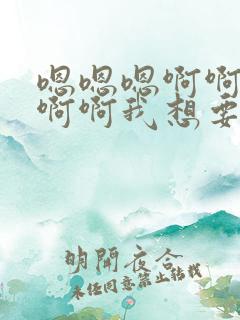 嗯嗯嗯啊啊
啊啊我想要
明開夜合
未经同意禁止转载